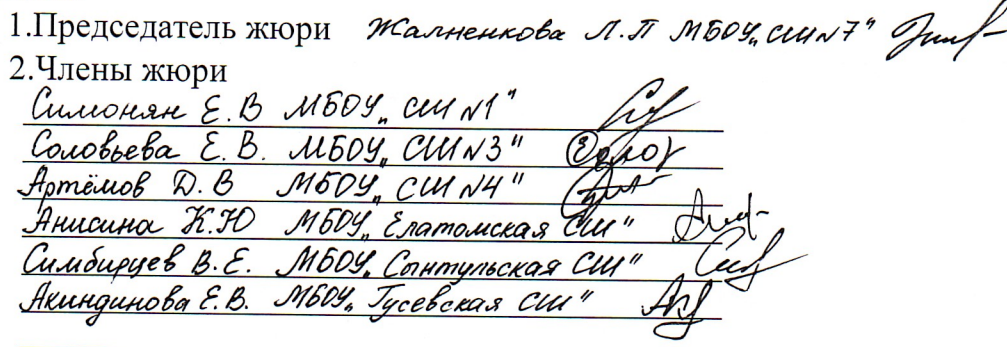 1.Председатель жюри Жалненкова Л.П МБОУ„СШ№7"
2.Члены жюри
Симонян Е.В МБОУ„СШ№1"
Соловьева Е.В. МБОУ„СШ№3"
Артёмов Д.В МБОУ„СШ№4"
Анисина К.Ю МБОУ„Елатомская СШ"
Симбирцев В.Е. МБОУ„Сынтульская СШ"
Акиндинова Е.В. МБОУ„Гусевская СШ"